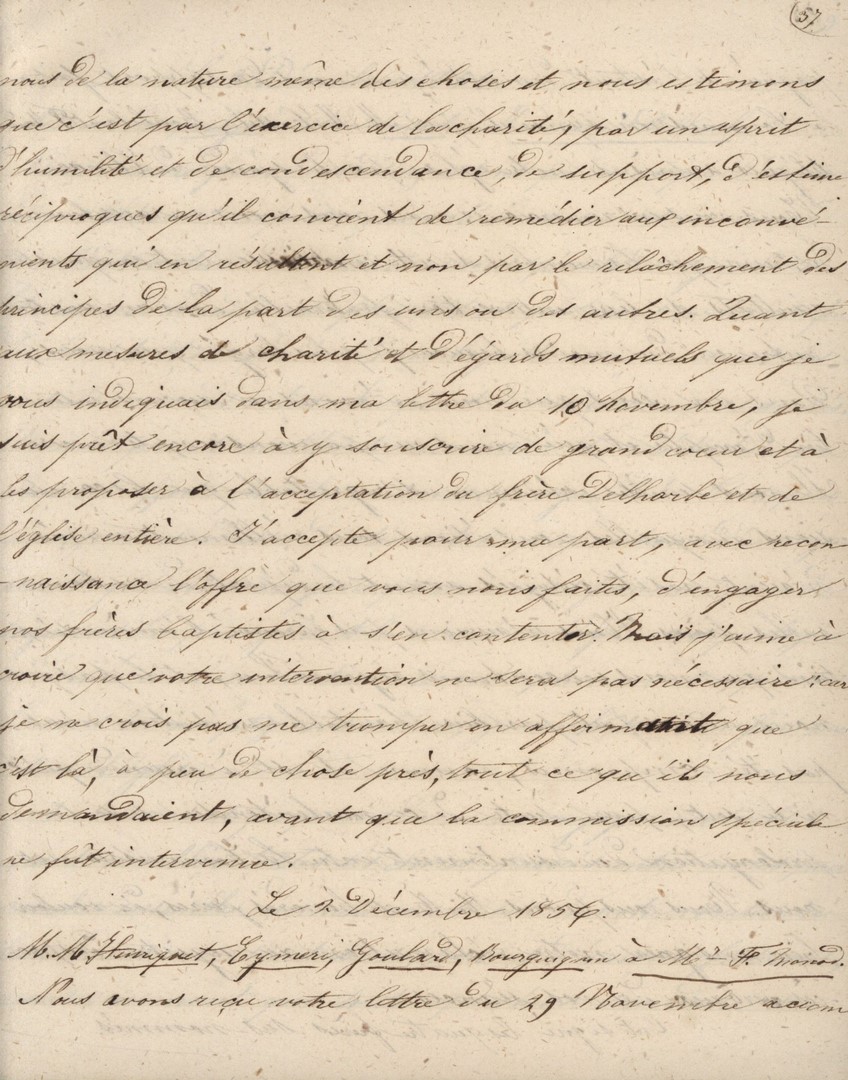 57
nous de la nature même des choses et nous estimons
que c'est par l'exercice de la charité, par un esprit
d'humilité et de condescendance, de support, d'estime
réciproques qu'il convient de remédier aux inconvé-
nients qui en résultent et non par le relâchement des
principes de la part des uns ou des autres. Quant
aux mesures de charité et d'égards mutuels que je
vous indiquais dans ma lettre du 10 Novembre, je
suis prêt encore à y souscrire de grand coeur et à
les proposer à l'acceptation du frère Delharbe et de
l'église entière. J'accepte pour ma part, avec recon
-naissance l'offre que vous nous faites, d'engager
nos frères baptistes à s'en contenter. Mais j'aime à
croire que votre intervention ne sera pas nécessaire: car
je ne crois pas me tromper en affirmant que
c'est là, à peu de chose près, tout ce qu'ils nous
demandaient, avant que la commission spéciale
ne fût intervenue.
Le 2 Décembre 1856.
M.M. Henriquet, Eymeri, Goulard, Bourguignon à Mr F. Monod.
Nous avons reçu votre lettre du 29 Novembre accom